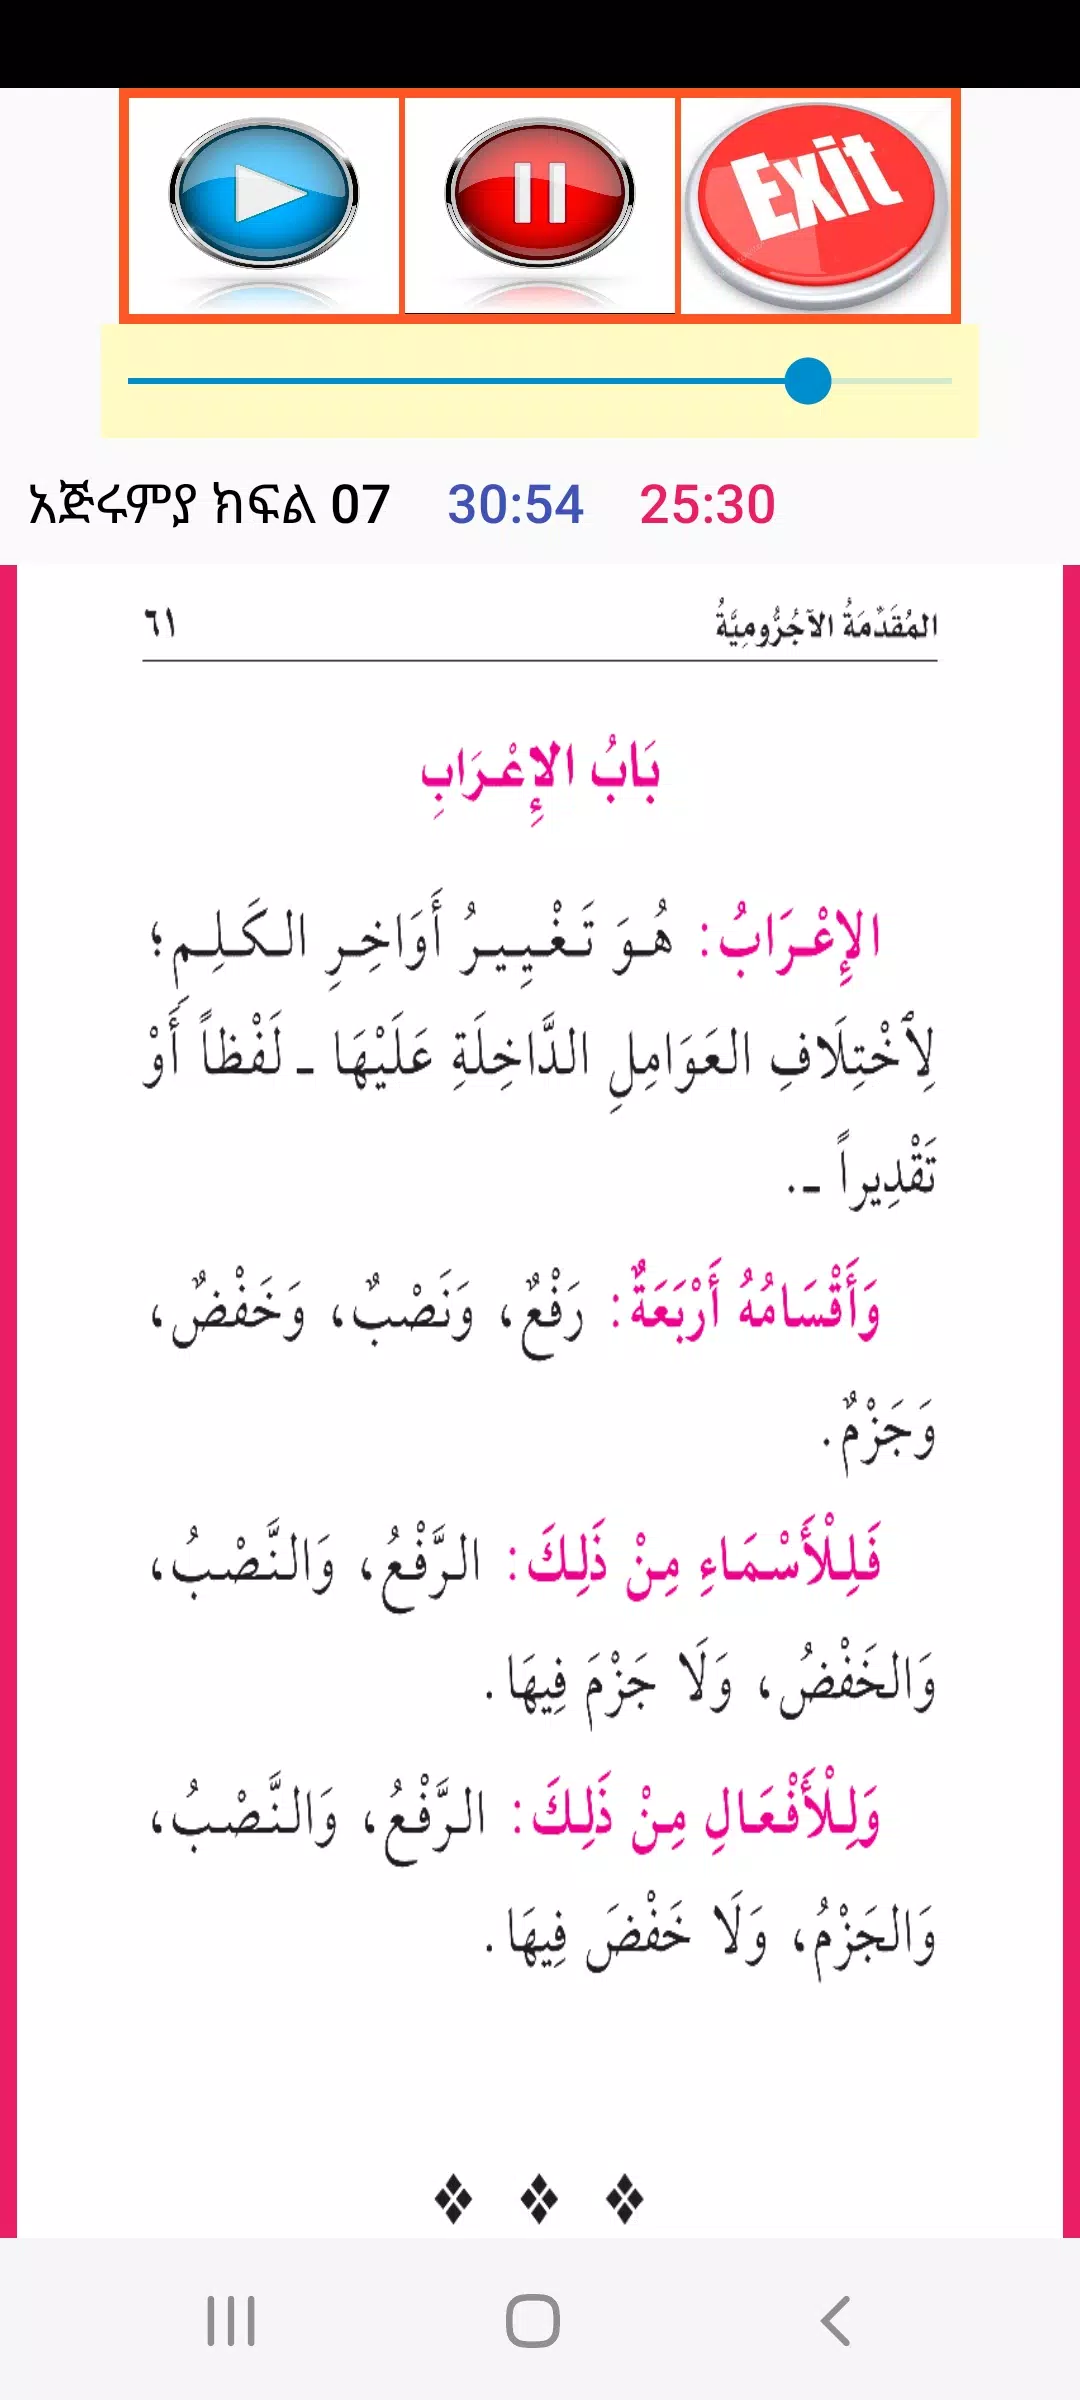 Exit
አጅሩምያ ክፍል 07 30:54 25:30
المُقَدِّمَةُ الآجُرُّومِيَّةُ ٦١
بَابُ الإِعْرَابِ
الإِعْرَابُ: هُوَ تَغْيِيرُ أَوَاخِرِ الكَلِمِ؛
لِٱخْتِلَافِ العَوَامِلِ الدَّاخِلَةِ عَلَيْهَا ـ لَفْظاً أَوْ
تَقْدِيراً ـ.
وَأَقْسَامُهُ أَرْبَعَةٌ: رَفْعٌ، وَنَصْبٌ، وَخَفْضٌ،
وَجَزْمٌ.
فَلِلْأَسْمَاءِ مِنْ ذَلِكَ: الرَّفْعُ، وَالنَّصْبُ،
وَالخَفْضُ، وَلَا جَزْمَ فِيهَا.
وَلِلْأَفْعَالِ مِنْ ذَلِكَ: الرَّفْعُ، وَالنَّصْبُ،
وَالجَزْمُ، وَلَا خَفْضَ فِيهَا.